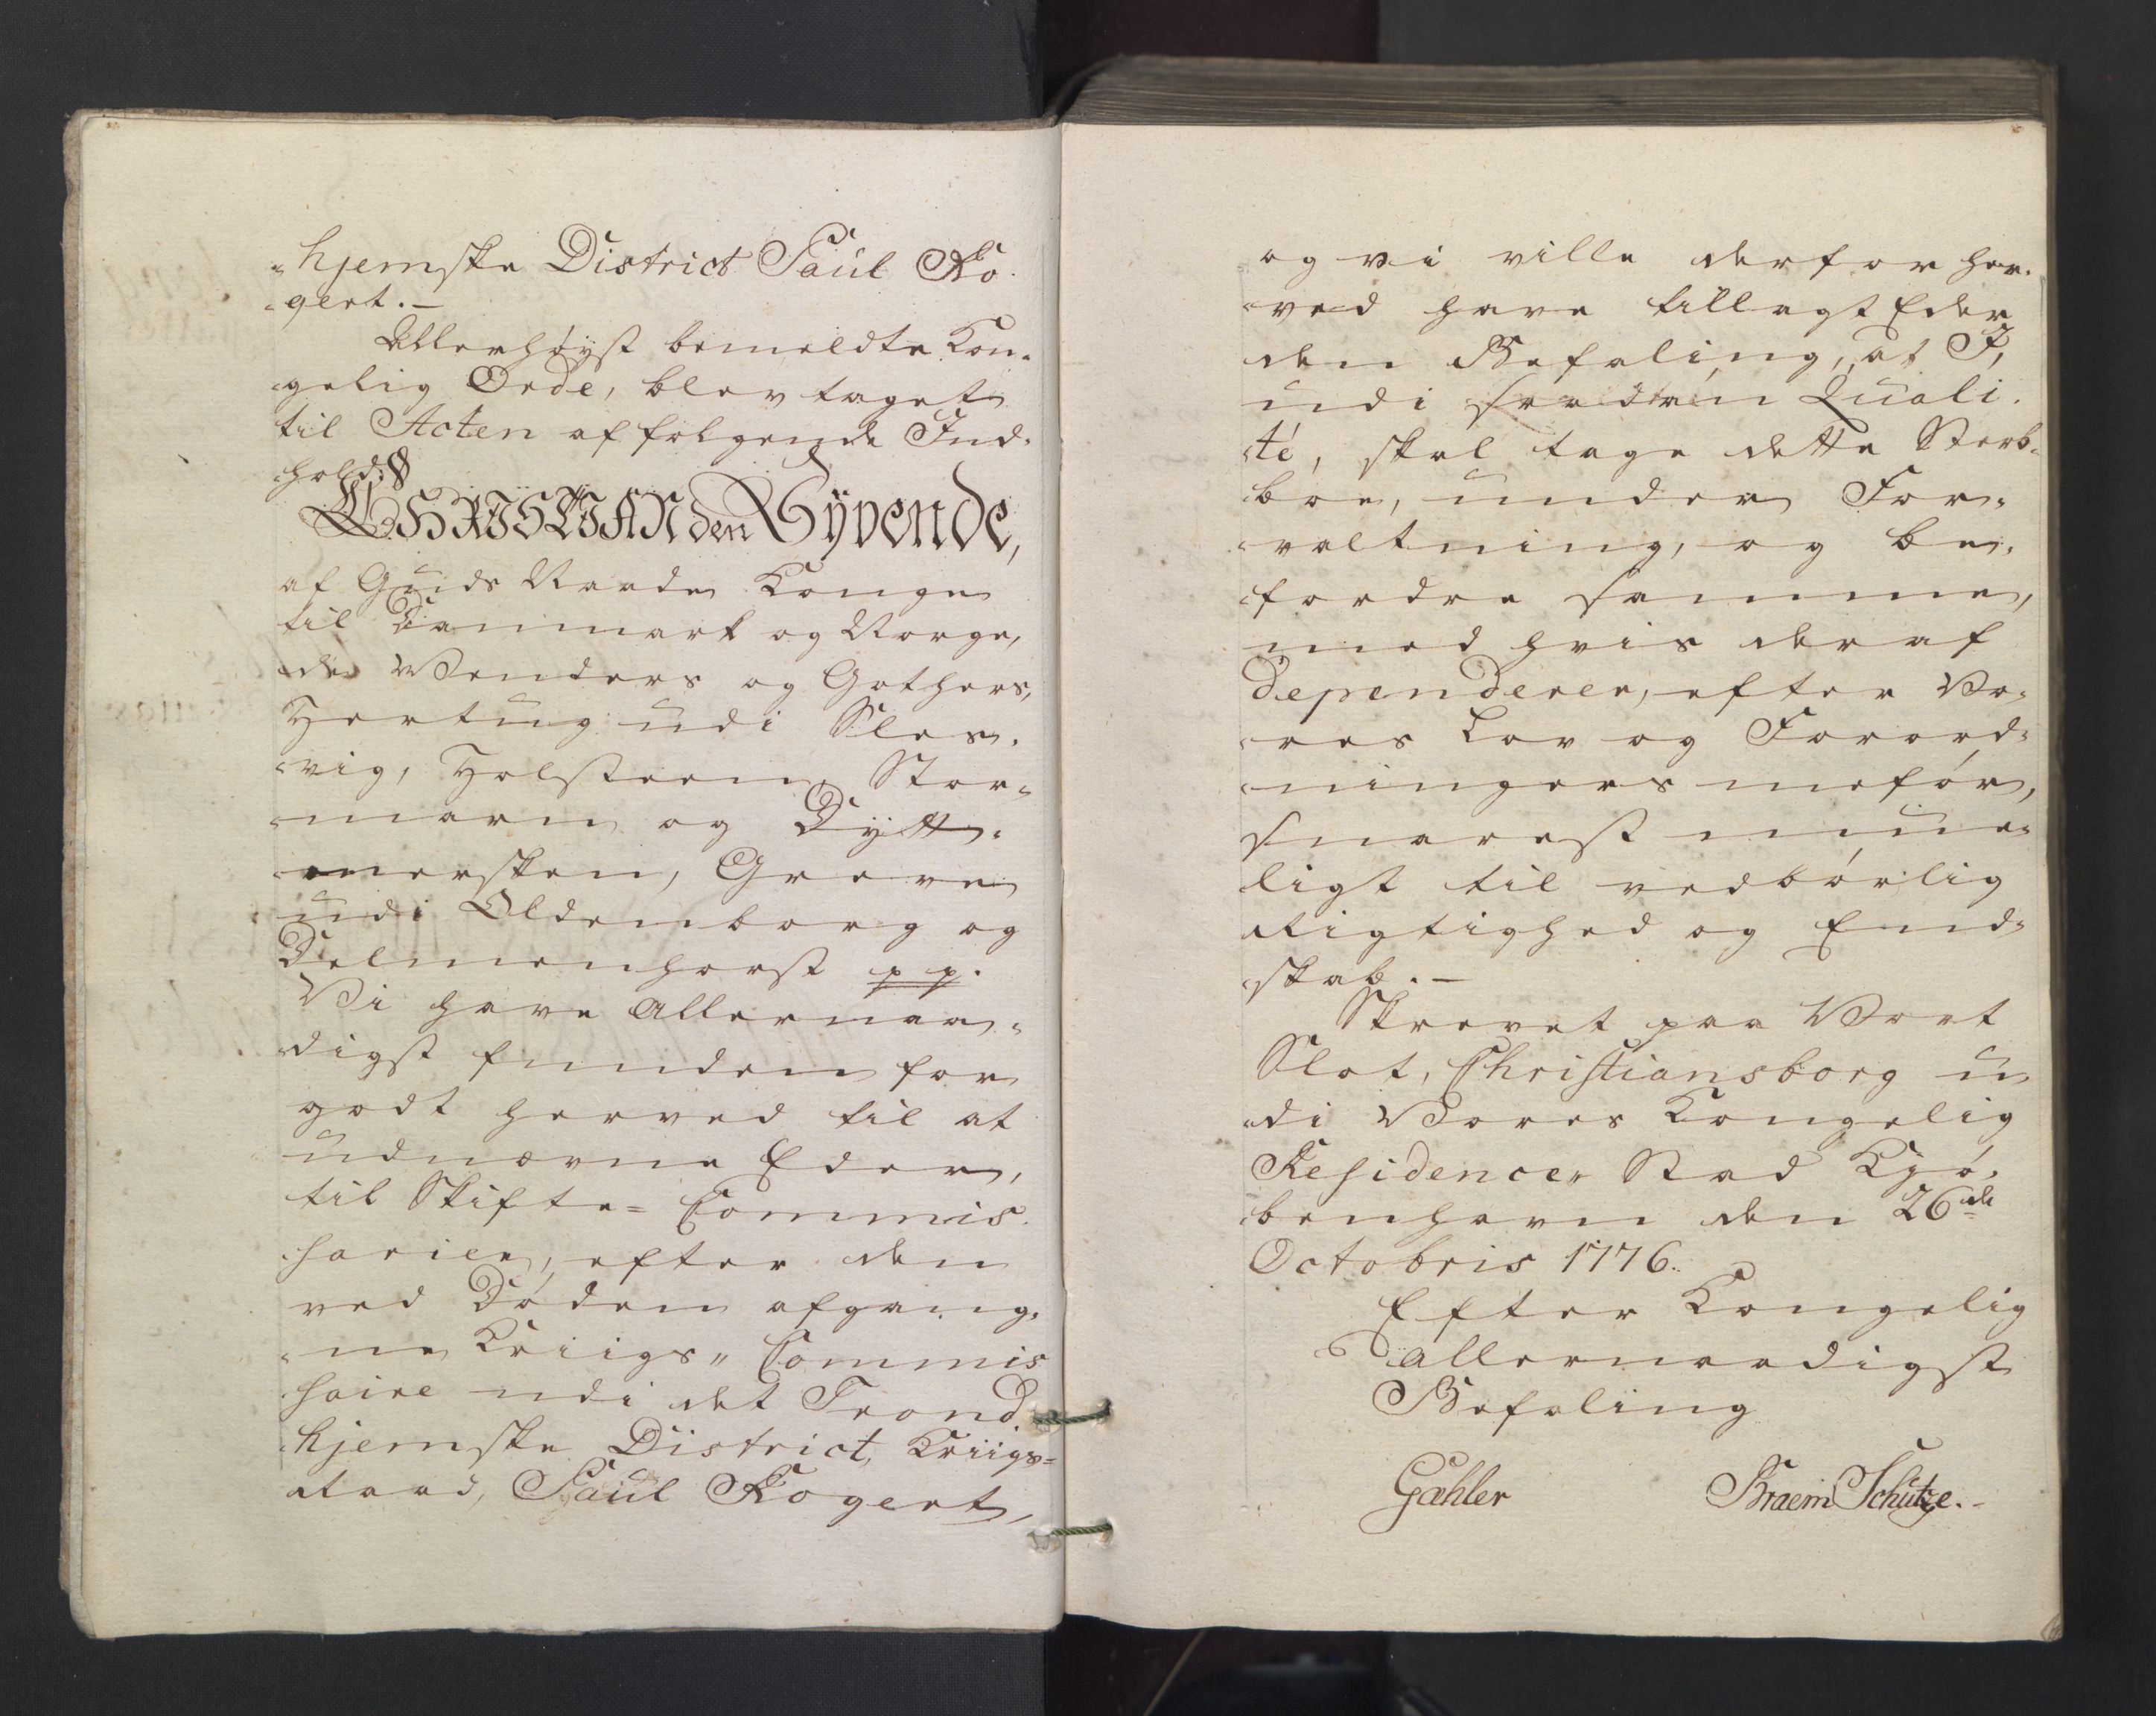 "hjemske District Paul Ro-
"gert.—
Allerhøyst bemeldte Kon-
"gelig Orde, blev taget
til Acten af følgende Ind-
"hold:
CHRISTIAN den Syvende,
af Guds Naade Konge
til Danmark og Norge,
de Venders og Gothers,
Hertug udi Sles-
"vig, Holsteen, Stor-
"marn og Dytt-
"mersken, Greve
udi Oldenborg og
Delmenhorst pp.
Vi have Allernaa-
digst funden for
godt herved til at
udnævne Eder,
til Skifte= Commis-
sarier, efter den
ved Døden afgang-
"ne Kriigs„ Commis
saire udi det Trond-
"hjemske District, Kriigs=
"Raad, Paul Rogert,
og vi ville derfor her-
"ved have tillagt Eder
den Befaling, at I,
udi saadan Quali-
"té, skal tage dette Sterb-
boe, under For-
"valtning, og be-
"fordre samme,
med hvis deraf
dependerer, efter Vo-
"res Lov og Forord-
"ningers medfør,
snarest mue-
ligt til vedbørlig
Rigtighed og End-
"skab.—
Skrevet paa Vort
Slot, Christiansborg u
"di Vores Kongelig
Residence„ Stad Kjø-
"benhavn den 26de
Octobris 1776.
Efter Kongelig
allernaadigst
Befaling
Gähler Braem Schütze.-